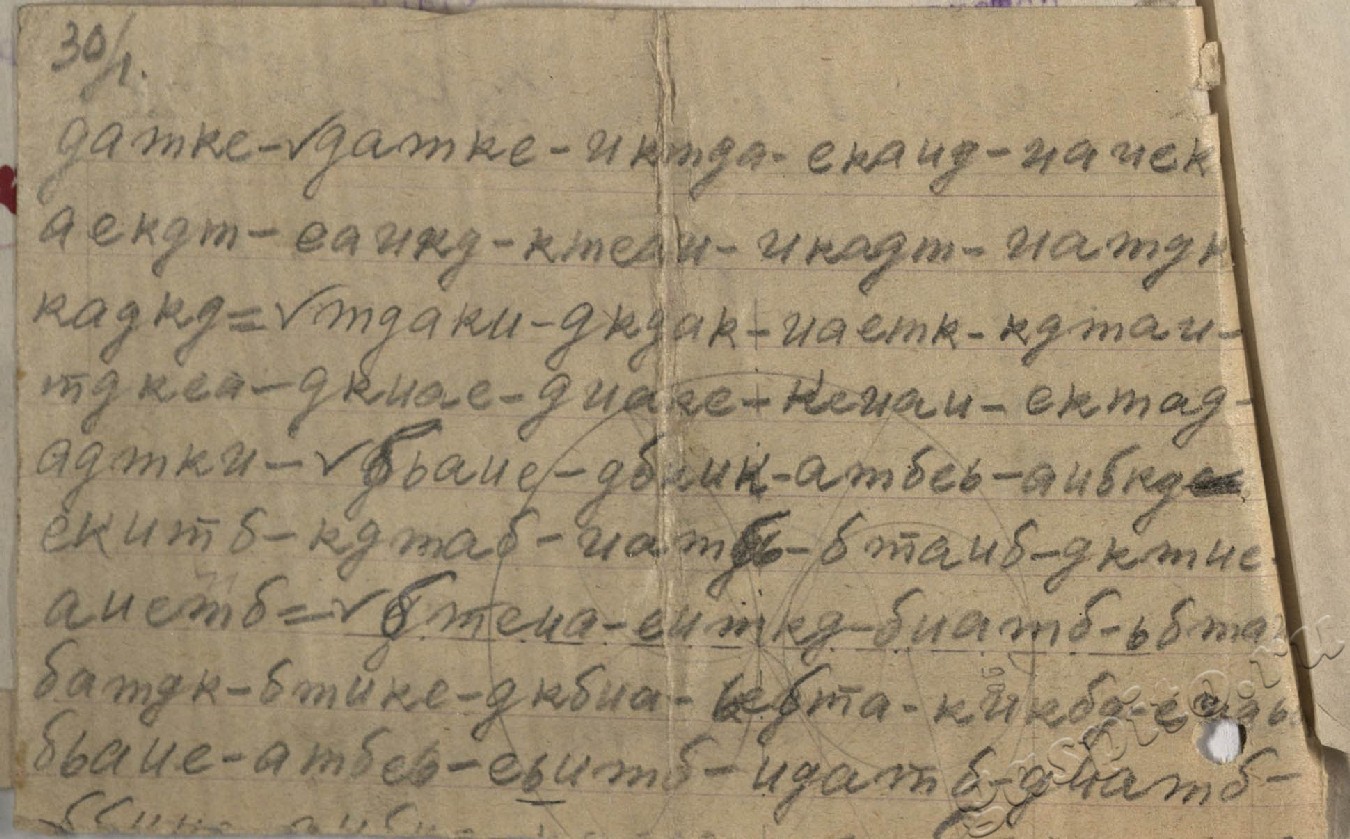 30/1.
датке-√датке-иктда-екаид-иаиек
аекдт-еаикд-ктеаи-икадт-иатдк
кадкд=√тдаки-дкдак-иаетк-кдтаи-
тдкеа-дкиае-диаке-кеиаи-ектад-
адтки-√бьаие-дбаик-атбеь-аибкд
екитб-кдтаб-бтаиб-дктие
аиетб=√бтеиа-еиткд-биатб-ьбта
батдк-бтике-дкбиа-кикба-
бьаие-атбеь-еьитб-идатб-диатб-